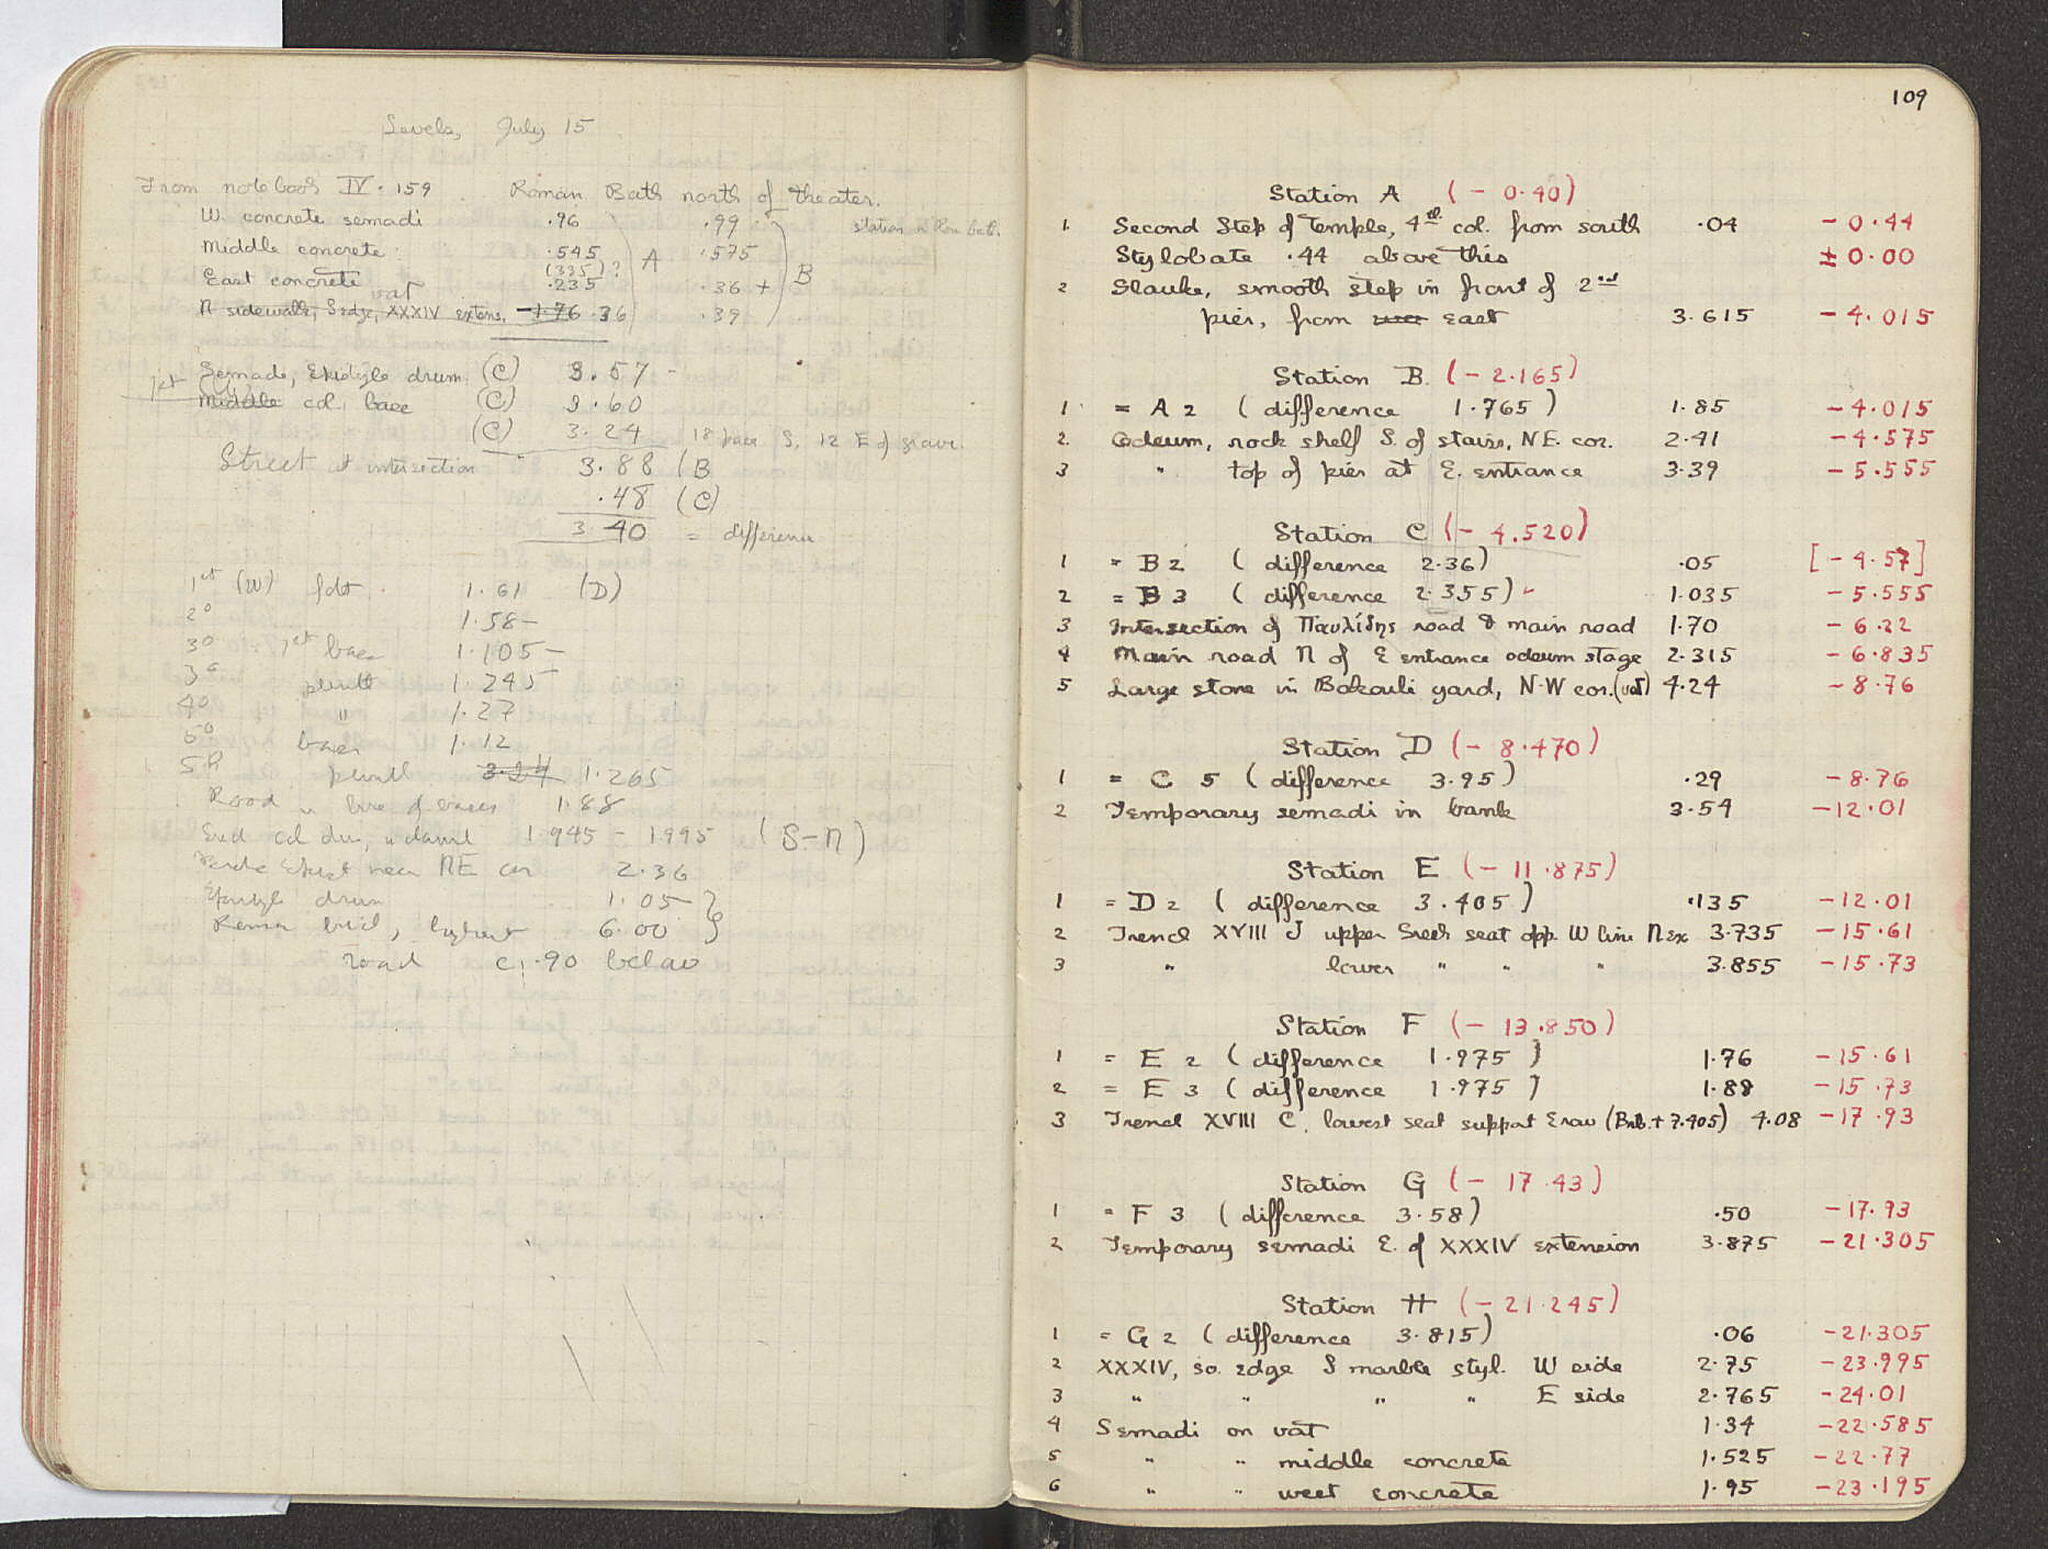 Levels, July 15
From notebook IV. 159 Roman Bath north of theater.
W. concrete semadi .96 .99 station in Rom bath.
Middle concrete .545 A .575 B
(335)?
East concrete .235 .36 +
vat
N sidewalk, S edge, XXXIV extens. -1.76 .36 .39
Semade, Epistyle drum (C) 3.57 -
1st (W)
Middle col. base (C) 3.60
(C) 3.24 18 pace S. 12 E of grave.
Street at intersection 3.88 (B
.48 (C)
3 40 = difference
1st (W) fdt. 1.61 (D)
2° 1.58 -
3° 1st base 1.105 -
3° plinth 1.245
4° " 1.27
5° base 1.12
5th plinth 3.24 1.265
Road in line of bases 1.88
End col dru, 1.945 - 1.995 (S-N)
near NE cor 2.36
Epistyle drum 1.05
Roman bld, highest 6.00
road c. .90 below
109
Station A (- 0.40)
1. Second Step of Temple, 4th col. from south .04 - 0.44
Stylobate .44 above this ± 0.00
2 Glauke, smooth step in front of 2nd
pier, from east 3.615 - 4.015
Station B (- 2.165)
1 = A 2 (difference 1.765) 1.85 - 4.015
2. Odeum, rock shelf S. of stairs, NE. cor. 2.41 - 4.575
3 " top of pier at E. entrance 3.39 - 5.555
Station C (- 4.520)
1 = B 2 (difference 2.36) .05 [- 4.57]
2 = B 3 (difference 2.355) 1.035 - 5.555
3 Intersection of Παυλίδης road & main road 1.70 - 6.22
4 Main road N of E entrance odeum stage 2.315 - 6.835
5 Large stone in Bakouli yard, N.W cor. (vat) 4.24 - 8.76
Station D (- 8.470)
1 = C 5 (difference 3.95) .29 - 8.76
2 Temporary semadi in bank 3.54 - 12.01
Station E (- 11.875)
1 = D 2 (difference 3.405) .135 - 12.01
2 Trench XVIII J upper Greek seat opp. W line N Ex 3.735 - 15.61
3 " lower " " " 3.855 - 15.73
Station F (- 13.850)
1 = E 2 (difference 1.975) 1.76 - 15.61
2 = E 3 (difference 1.975) 1.88 - 15.73
3 Trench XVIII C, lowest seat support E row (Bnb. + 7.405) 4.08 - 17.93
Station G (- 17.43)
1 = F 3 (difference 3.58) .50 - 17.93
2 Temporary semadi E. of XXXIV extension 3.875 - 21.305
Station H (- 21.245)
1 = G 2 (difference 3.815) .06 - 21.305
2 XXXIV, so. edge S marble styl. W side 2.75 - 23.995
3 " " " " E side 2.765 - 24.01
4 Semadi on vat 1.34 - 22.585
5 " " middle concrete 1.525 - 22.77
6 " " west concrete 1.95 - 23.195